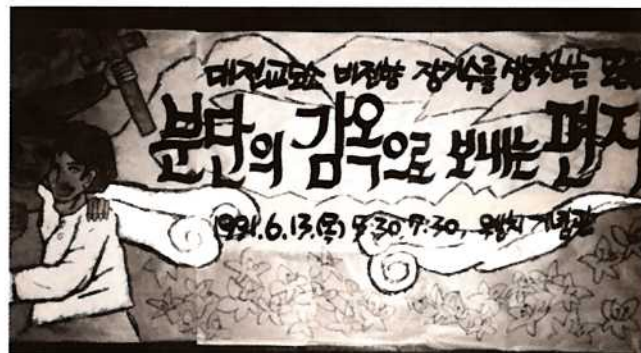 대전교도소 비전향 장기수를 생각하는
분단의 감옥으로 보내는 편지
1991.6.13.(목) 5:30, 7:30,